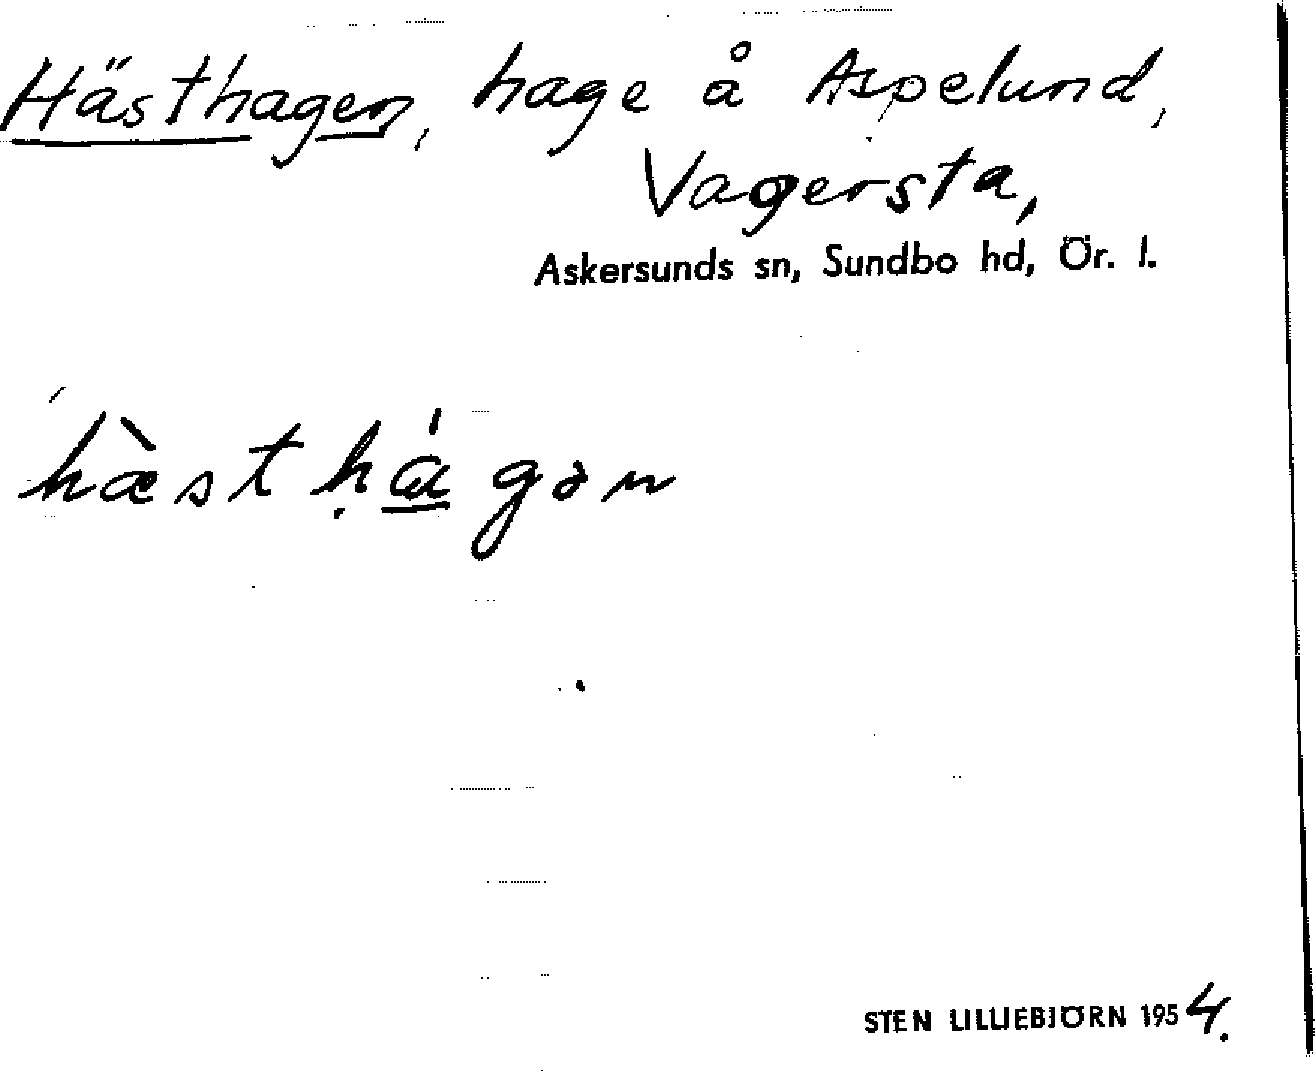 Hästhagen, hage å Aspelund,
Vagersta,
Askersunds sn, Sundbo hd, Ör. l.
hæ̀sthá̱gən
STEN LILLIEBJÖRN 1954.